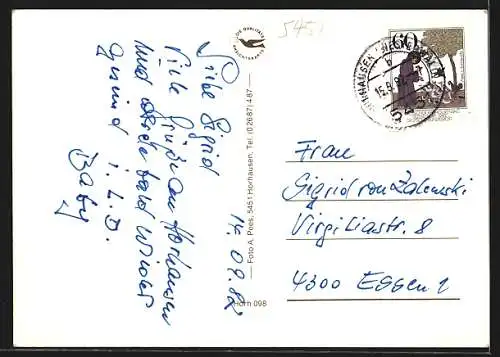 5451
Liebe Sigrid
14.09.82
Viele Grüße aus Horhausen
und werde bald wieder
gesund i. L. D.
Baby
Foto A. Pees, 5451 Horhausen, Tel. (0 26 87) 4 87
Horn 098
60
Frau
Sigrid von Zalewski
Virgiliastr. 8
4300 Essen 1